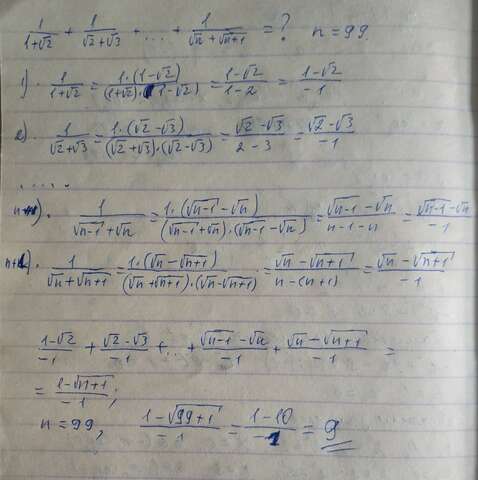 1/(1+√2) + 1/(√2+√3) + ... + 1/(√n+√(n+1)) = ? n=99
1). 1/(1+√2) = 1·(1-√2)/((1+√2)·(1-√2)) = (1-√2)/(1-2) = (1-√2)/-1
2). 1/(√2+√3) = 1·(√2-√3)/((√2+√3)·(√2-√3)) = (√2-√3)/(2-3) = (√2-√3)/-1
.....
1/(√(n-1)+√n) = 1·(√(n-1)-√n)/((√(n-1)+√n)·(√(n-1)-√n)) = (√(n-1)-√n)/(n-1-n) = (√(n-1)-√n)/-1
1/(√n+√(n+1)) = 1·(√n-√(n+1))/((√n+√(n+1))·(√n-√(n+1))) = (√n-√(n+1))/(n-(n+1)) = (√n-√(n+1))/-1
(1-√2)/-1 + (√2-√3)/-1 + ... + (√(n-1)-√n)/-1 + (√n-√(n+1))/-1 =
= (1-√(n+1))/-1;
n=99, (1-√(99+1))/-1 = (1-10)/-1 = 9